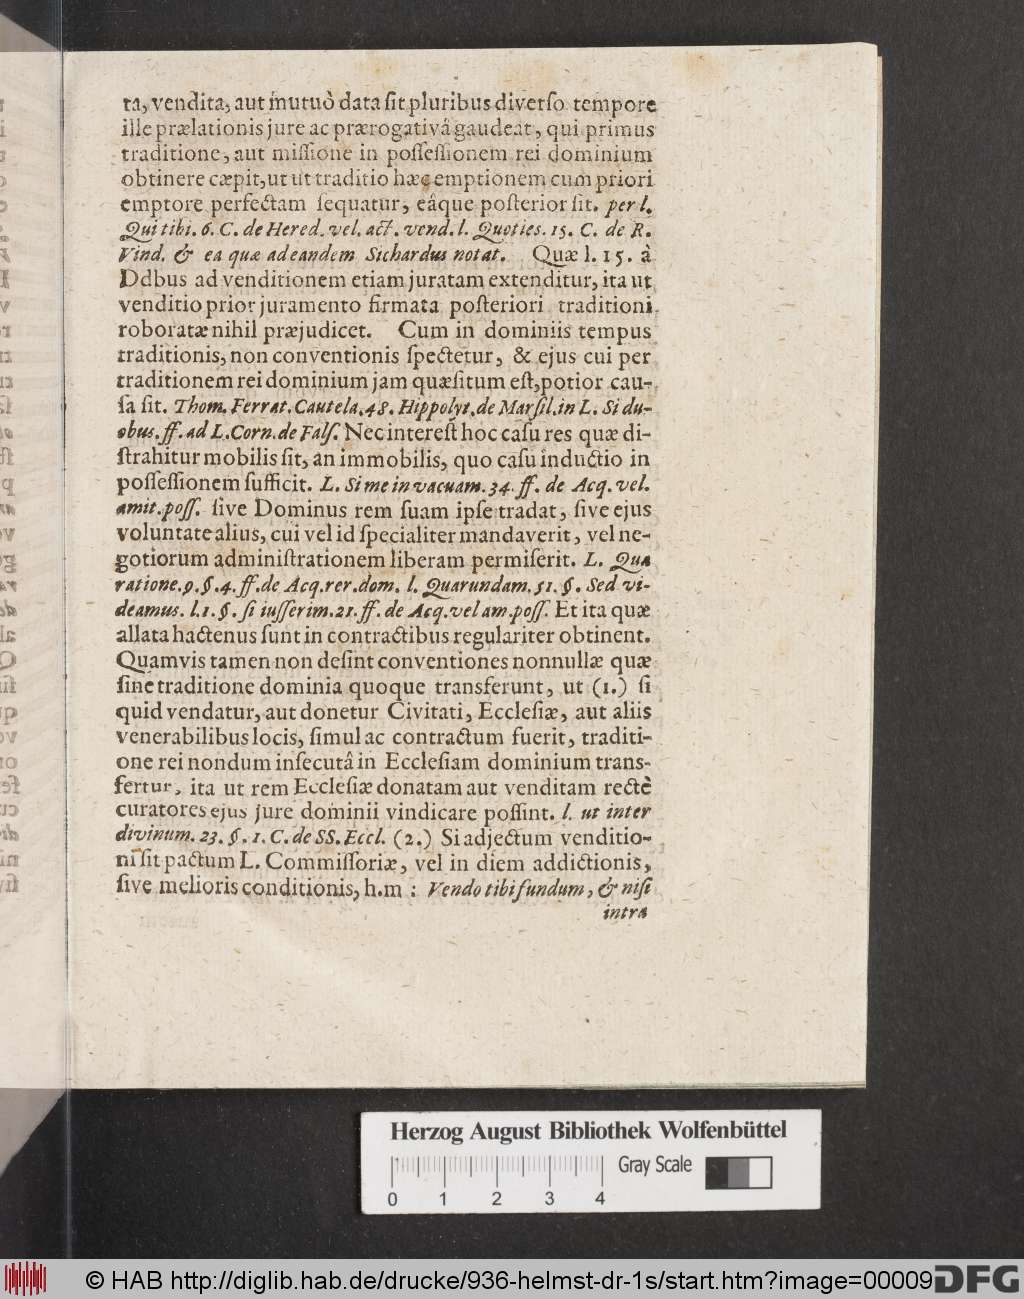 ta, vendita, aut mutuò data ſit pluribus diverſo tempore
ille prælationis jure ac prærogativâ gaudeat, qui primus
traditione, aut miſſione in poſſeſſionem rei dominium
obtinere cæpit, ut ut traditio hæc emptionem cum priori
emptore perfectam ſequatur, eâque poſterior ſit. per l.
Qui tibi. 6. C. de Hered. vel. act. vend. l. Quoties. 15. C. de R.
Vind. & ea quæ ad eandem Sichardus notat. Quæ l. 15. à
Ddbus ad venditionem etiam juratam extenditur, ita ut
venditio prior juramento firmata poſteriori traditioni
roboratæ nihil præjudicet. Cum in dominiis tempus
traditionis, non conventionis ſpectetur, & ejus cui per
traditionem rei dominium jam quæſitum eſt, potior cau-
ſa ſit. Thom. Ferrat. Cautela. 48. Hippolyt. de Marſil. in L. Si du-
obus. ff. ad L. Corn. de Falſ. Nec intereſt hoc caſu res quæ di-
ſtrahitur mobilis ſit, an immobilis, quo caſu inductio in
poſſeſſionem ſufficit. L. Si me in vacuam. 34. ff. de Acq. vel.
amit. poſſ. ſive Dominus rem ſuam ipſe tradat, ſive ejus
voluntate alius, cui vel id ſpecialiter mandaverit, vel ne-
gotiorum adminiſtrationem liberam permiſerit. L. Qua
ratione. 9. §. 4. ff. de Acq. rer. dom. l. Quarundam. 51. §. Sed vi-
deamus. l. 1. §. ſi iuſſerim. 21. ff. de Acq. vel am. poſſ. Et ita quæ
allata hactenus ſunt in contractibus regulariter obtinent.
Quamvis tamen non deſint conventiones nonnullæ quæ
ſine traditione dominia quoque transferunt, ut (1.) ſi
quid vendatur, aut donetur Civitati, Eccleſiæ, aut aliis
venerabilibus locis, ſimul ac contractum fuerit, traditi-
one rei nondum inſecutâ in Eccleſiam dominium trans-
fertur, ita ut rem Eccleſiæ donatam aut venditam rectè
curatores ejus jure dominii vindicare poſſint. l. ut inter
divinum. 23. §. 1. C. de SS. Eccl. (2.) Si adjectum venditio-
ni ſit pactum L. Commiſſoriæ, vel in diem addictionis,
ſive melioris conditionis, h. m: Vendo tibi fundum, & niſi
intra
Herzog August Bibliothek Wolfenbüttel
Gray Scale
0 1 2 3 4
© HAB http://diglib.hab.de/drucke/936-helmst-dr-1s/start.htm?image=00009
DFG